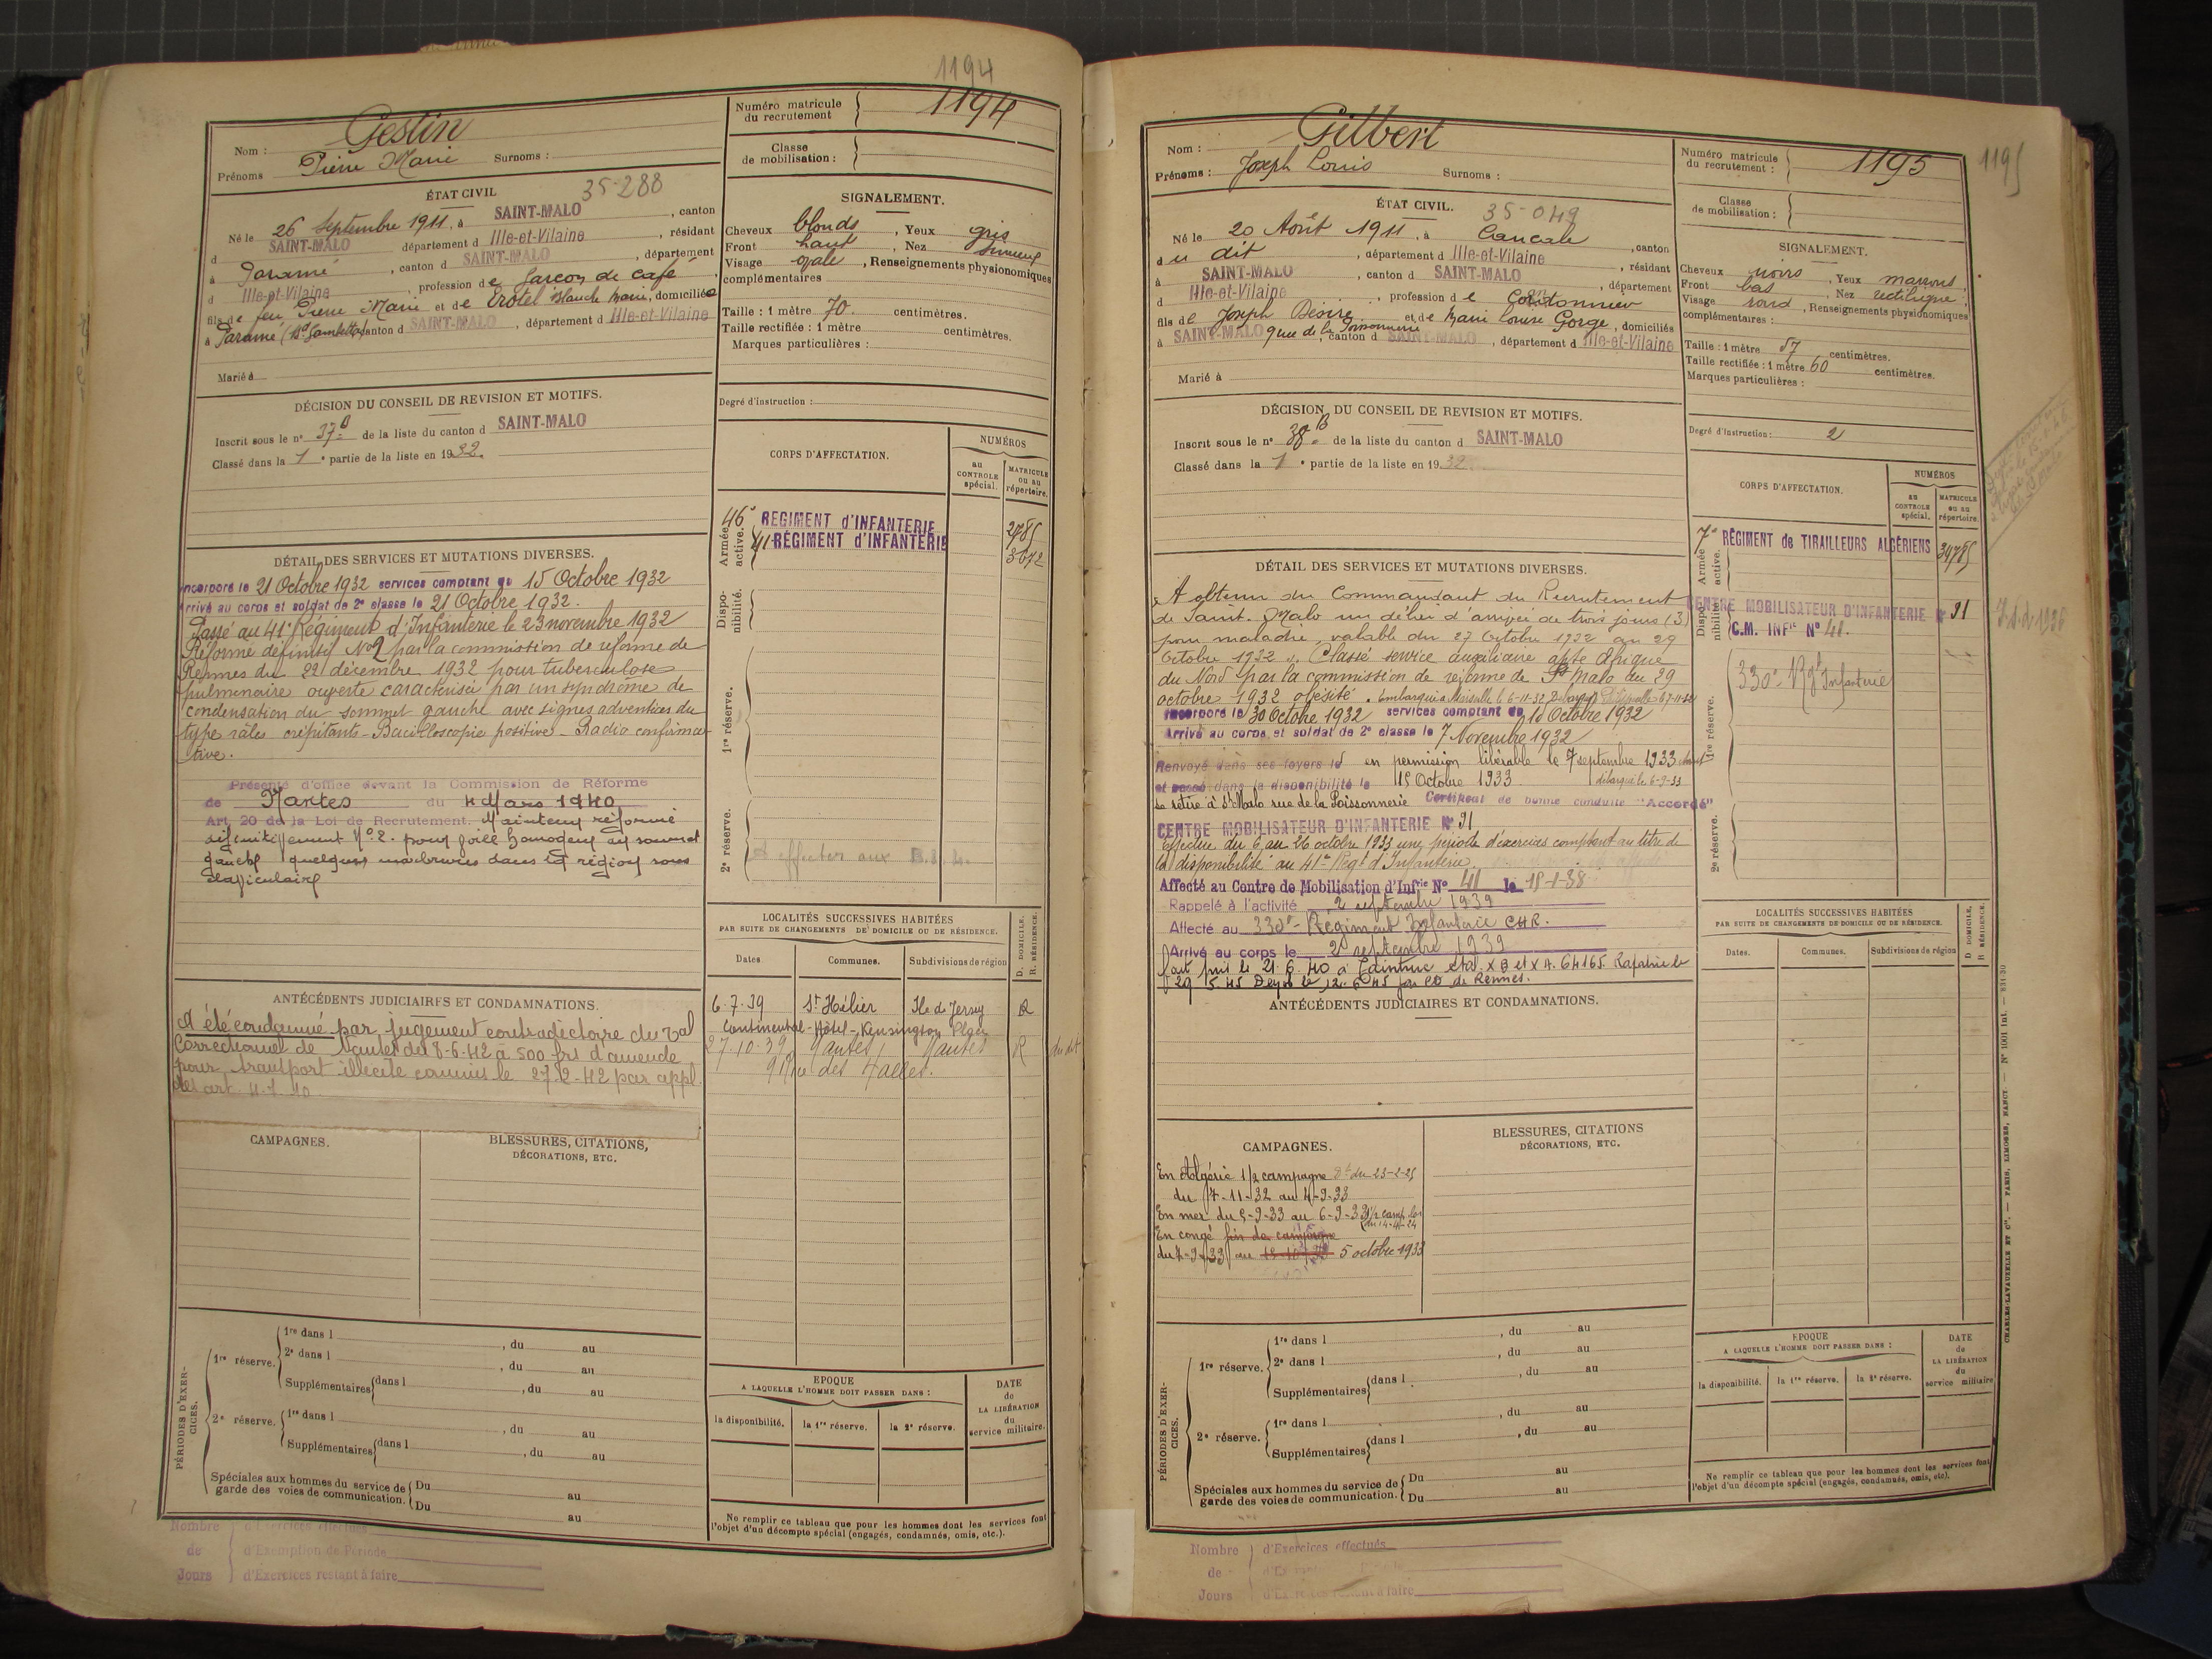 1194
Nom : Gestin
Prénoms Pierre Marie Surnoms :
Numéro matricule du recrutement 1194
Classe de mobilisation :
ÉTAT CIVIL 35-288
Né le 26 Septembre 1911, à SAINT-MALO, canton
d SAINT-MALO département d Ille-et-Vilaine, résident
à Paramé, canton d SAINT-MALO, département
d Ille-et-Vilaine, profession de Garçon de café
fils de feu Pierre Marie et de Erotel Blanche Marie, domiciliée
à Paramé (Bd Gambetta) canton d SAINT-MALO, département d Ille-et-Vilaine
Marié à
SIGNALEMENT.
Cheveux blonds, Yeux gris
Front haut, Nez sinueux
Visage ovale, Renseignements physionomiques
complémentaires
Taille : 1 mètre 70 centimètres.
Taille rectifiée : 1 mètre centimètres.
Marques particulières :
Degré d'instruction :
DÉCISION DU CONSEIL DE REVISION ET MOTIFS.
Inscrit sous le n° 37 B de la liste du canton d SAINT-MALO
Classé dans la 1e partie de la liste en 1932.
CORPS D'AFFECTATION.
NUMÉROS
au CONTROLE spécial.
MATRICULE ou au répertoire.
Armée active.
46e REGIMENT d'INFANTERIE 2785
41 RÉGIMENT d'INFANTERIE 3072
Disponibilité.
1re réserve.
2e réserve.
A affecter aux
DÉTAIL DES SERVICES ET MUTATIONS DIVERSES.
Incorporé le 21 Octobre 1932 services comptant du 15 Octobre 1932
Arrivé au corps et soldat de 2e classe le 21 Octobre 1932.
Passé au 41e Régiment d'Infanterie le 23 novembre 1932
Réformé définitif No 2 par la commission de réforme de
Rennes du 22 décembre 1932 pour tuberculose
pulmonaire ouverte caractérisée par un syndrome de
condensation du sommet gauche avec signes adventices du
type râles crépitants - Bacilloscopie positive - Radio confirma-
tive.
Présenté d'office devant la Commission de Réforme
de Nantes du 4 Mars 1940
Art. 20 de la Loi de Recrutement. Maintenu réformé
définitivement No 2. pour voile homogène au sommet
gauche quelques marbrures dans la région sous
claviculaire
LOCALITÉS SUCCESSIVES HABITÉES
PAR SUITE DE CHANGEMENTS DE DOMICILE OU DE RÉSIDENCE.
Dates Communes. Subdivisions de région D. DOMICILE. R. RÉSIDENCE.
6.7.39 St Hélier Ile de Jersey R
Continental-Hôtel-Kensington Place
27.10.39 Nantes Nantes R du dit
9 Rue des Halles.
ANTÉCÉDENTS JUDICIAIRES ET CONDAMNATIONS.
A été condamné par jugement contradictoire du Tal
Correctionnel de Nantes du 8-6-42 à 500 frs d'amende
pour transport illicite commis le 27-2-42 par appl.
des art. 4-7-10
CAMPAGNES.
BLESSURES, CITATIONS,
DÉCORATIONS, ETC.
PÉRIODES D'EXERCICES.
1re réserve.
1re dans l , du au
2e dans l , du au
Supplémentaires dans l , du au
2e réserve.
1re dans l , du au
Supplémentaires dans l , du au
Spéciales aux hommes du service de garde des voies de communication.
Du au
Du au
EPOQUE
A LAQUELLE L'HOMME DOIT PASSER DANS :
la disponibilité. la 1re réserve. la 2e réserve.
DATE de LA LIBÉRATION du service militaire.
Ne remplir ce tableau que pour les hommes dont les services font
l'objet d'un décompte spécial (engagés, condamnés, omis, etc.).
Nombre de Jours
d'Exercices effectués
d'Exemption de Période
d'Exercices restant à faire
Nom : Gilbert
Prénoms : Joseph Louis Surnoms :
Numéro matricule du recrutement : 1195
1195
Classe de mobilisation :
ÉTAT CIVIL. 35-049
Né le 20 Août 1911, à Cancale, canton
du dit, département d Ille-et-Vilaine, résidant
à SAINT-MALO, canton d SAINT-MALO, département
d Ille-et-Vilaine, profession de Cordonnier
fils de Joseph Désiré et de Marie Louise Gorge, domiciliés
à SAINT-MALO 9 rue de la Poissonnerie, canton d SAINT-MALO, département d Ille-et-Vilaine
Marié à
SIGNALEMENT.
Cheveux noirs, Yeux marrons,
Front bas, Nez rectiligne,
Visage rond, Renseignements physionomiques
complémentaires :
Taille : 1 mètre 57 centimètres.
Taille rectifiée : 1 mètre 60 centimètres.
Marques particulières :
Degré d'instruction : 2
DÉCISION DU CONSEIL DE REVISION ET MOTIFS.
Inscrit sous le n° 38 B de la liste du canton d SAINT-MALO
Classé dans la 1e partie de la liste en 1932.
CORPS D'AFFECTATION.
NUMÉROS
au CONTROLE spécial.
MATRICULE ou au répertoire.
Armée active.
7e RÉGIMENT de TIRAILLEURS ALGÉRIENS 34785
Disponibilité
CENTRE MOBILISATEUR D'INFANTERIE No 91
C.M. INFie No 41.
1re réserve.
330e Rgt Infanterie
2e réserve.
DÉTAIL DES SERVICES ET MUTATIONS DIVERSES.
A obtenu du Commandant du Recrutement
de Saint-Malo un délai d'arrivée de trois jours (3)
pour maladie, valable du 27 Octobre 1932 au 29
Octobre 1932. Classé service auxiliaire apte Afrique
du Nord par la commission de réforme de St Malo du 29
octobre 1932 obésité. Embarqué à Marseille le 6-11-32
Incorporé le 30 Octobre 1932 services comptant du 15 Octobre 1932
Arrivé au corps et soldat de 2e classe le 7 Novembre 1932
Renvoyé dans ses foyers le en permission libérable le 7 septembre 1933
et passé dans la disponibilité le 15 Octobre 1933 débarqué le 6-9-33
se retire à St Malo rue de la Poissonnerie Certificat de bonne conduite "Accordé"
CENTRE MOBILISATEUR D'INFANTERIE No 91
Effectue du 6 au 26 octobre 1933 une période d'exercices comptant au titre de
la disponibilité au 41e Regt d'Infanterie.
Affecté au Centre de Mobilisation d'Infrie No 41 le 15-1-38
Rappelé à l'activité 2 septembre 1939
Affecté au 330e Régiment Infanterie CHR.
Arrivé au corps le 2 septembre 1939
Fait pris le 21.6.40 à Stal. X B et X A. 64165. Rapatrié le
29 5 45 le 12.6.45 par CD de Rennes.
ANTÉCÉDENTS JUDICIAIRES ET CONDAMNATIONS.
LOCALITÉS SUCCESSIVES HABITÉES
PAR SUITE DE CHANGEMENTS DE DOMICILE OU DE RÉSIDENCE.
Dates. Communes. Subdivisions de région D DOMICILE. R RÉSIDENCE.
CAMPAGNES.
En Algérie 1/2 campagne Dt du 23-2-25
du 7-11-32 au 4-9-33
En mer du 5-9-33 au 6-9-33 1/2 camp.
En congé fin de campagne
du 7-9-33 au 5 octobre 1933
BLESSURES, CITATIONS
DÉCORATIONS, ETC.
PÉRIODES D'EXERCICES.
1re réserve.
1re dans l , du au
2e dans l , du au
Supplémentaires dans l , du au
2e réserve.
1re dans l , du au
Supplémentaires dans l , du au
Spéciales aux hommes du service de garde des voies de communication.
Du au
Du au
EPOQUE
A LAQUELLE L'HOMME DOIT PASSER DANS :
la disponibilité. la 1re réserve. la 2e réserve.
DATE de LA LIBÉRATION du service militaire
Ne remplir ce tableau que pour les hommes dont les services font
l'objet d'un décompte spécial (engagés, condamnés, omis, etc).
CHARLES-LAVAUZELLE ET Cie. — PARIS, LIMOGES, NANCY — N° 1001 Int. — 831-30
Nombre de Jours
d'Exercices effectués
d'Exercices restant à faire